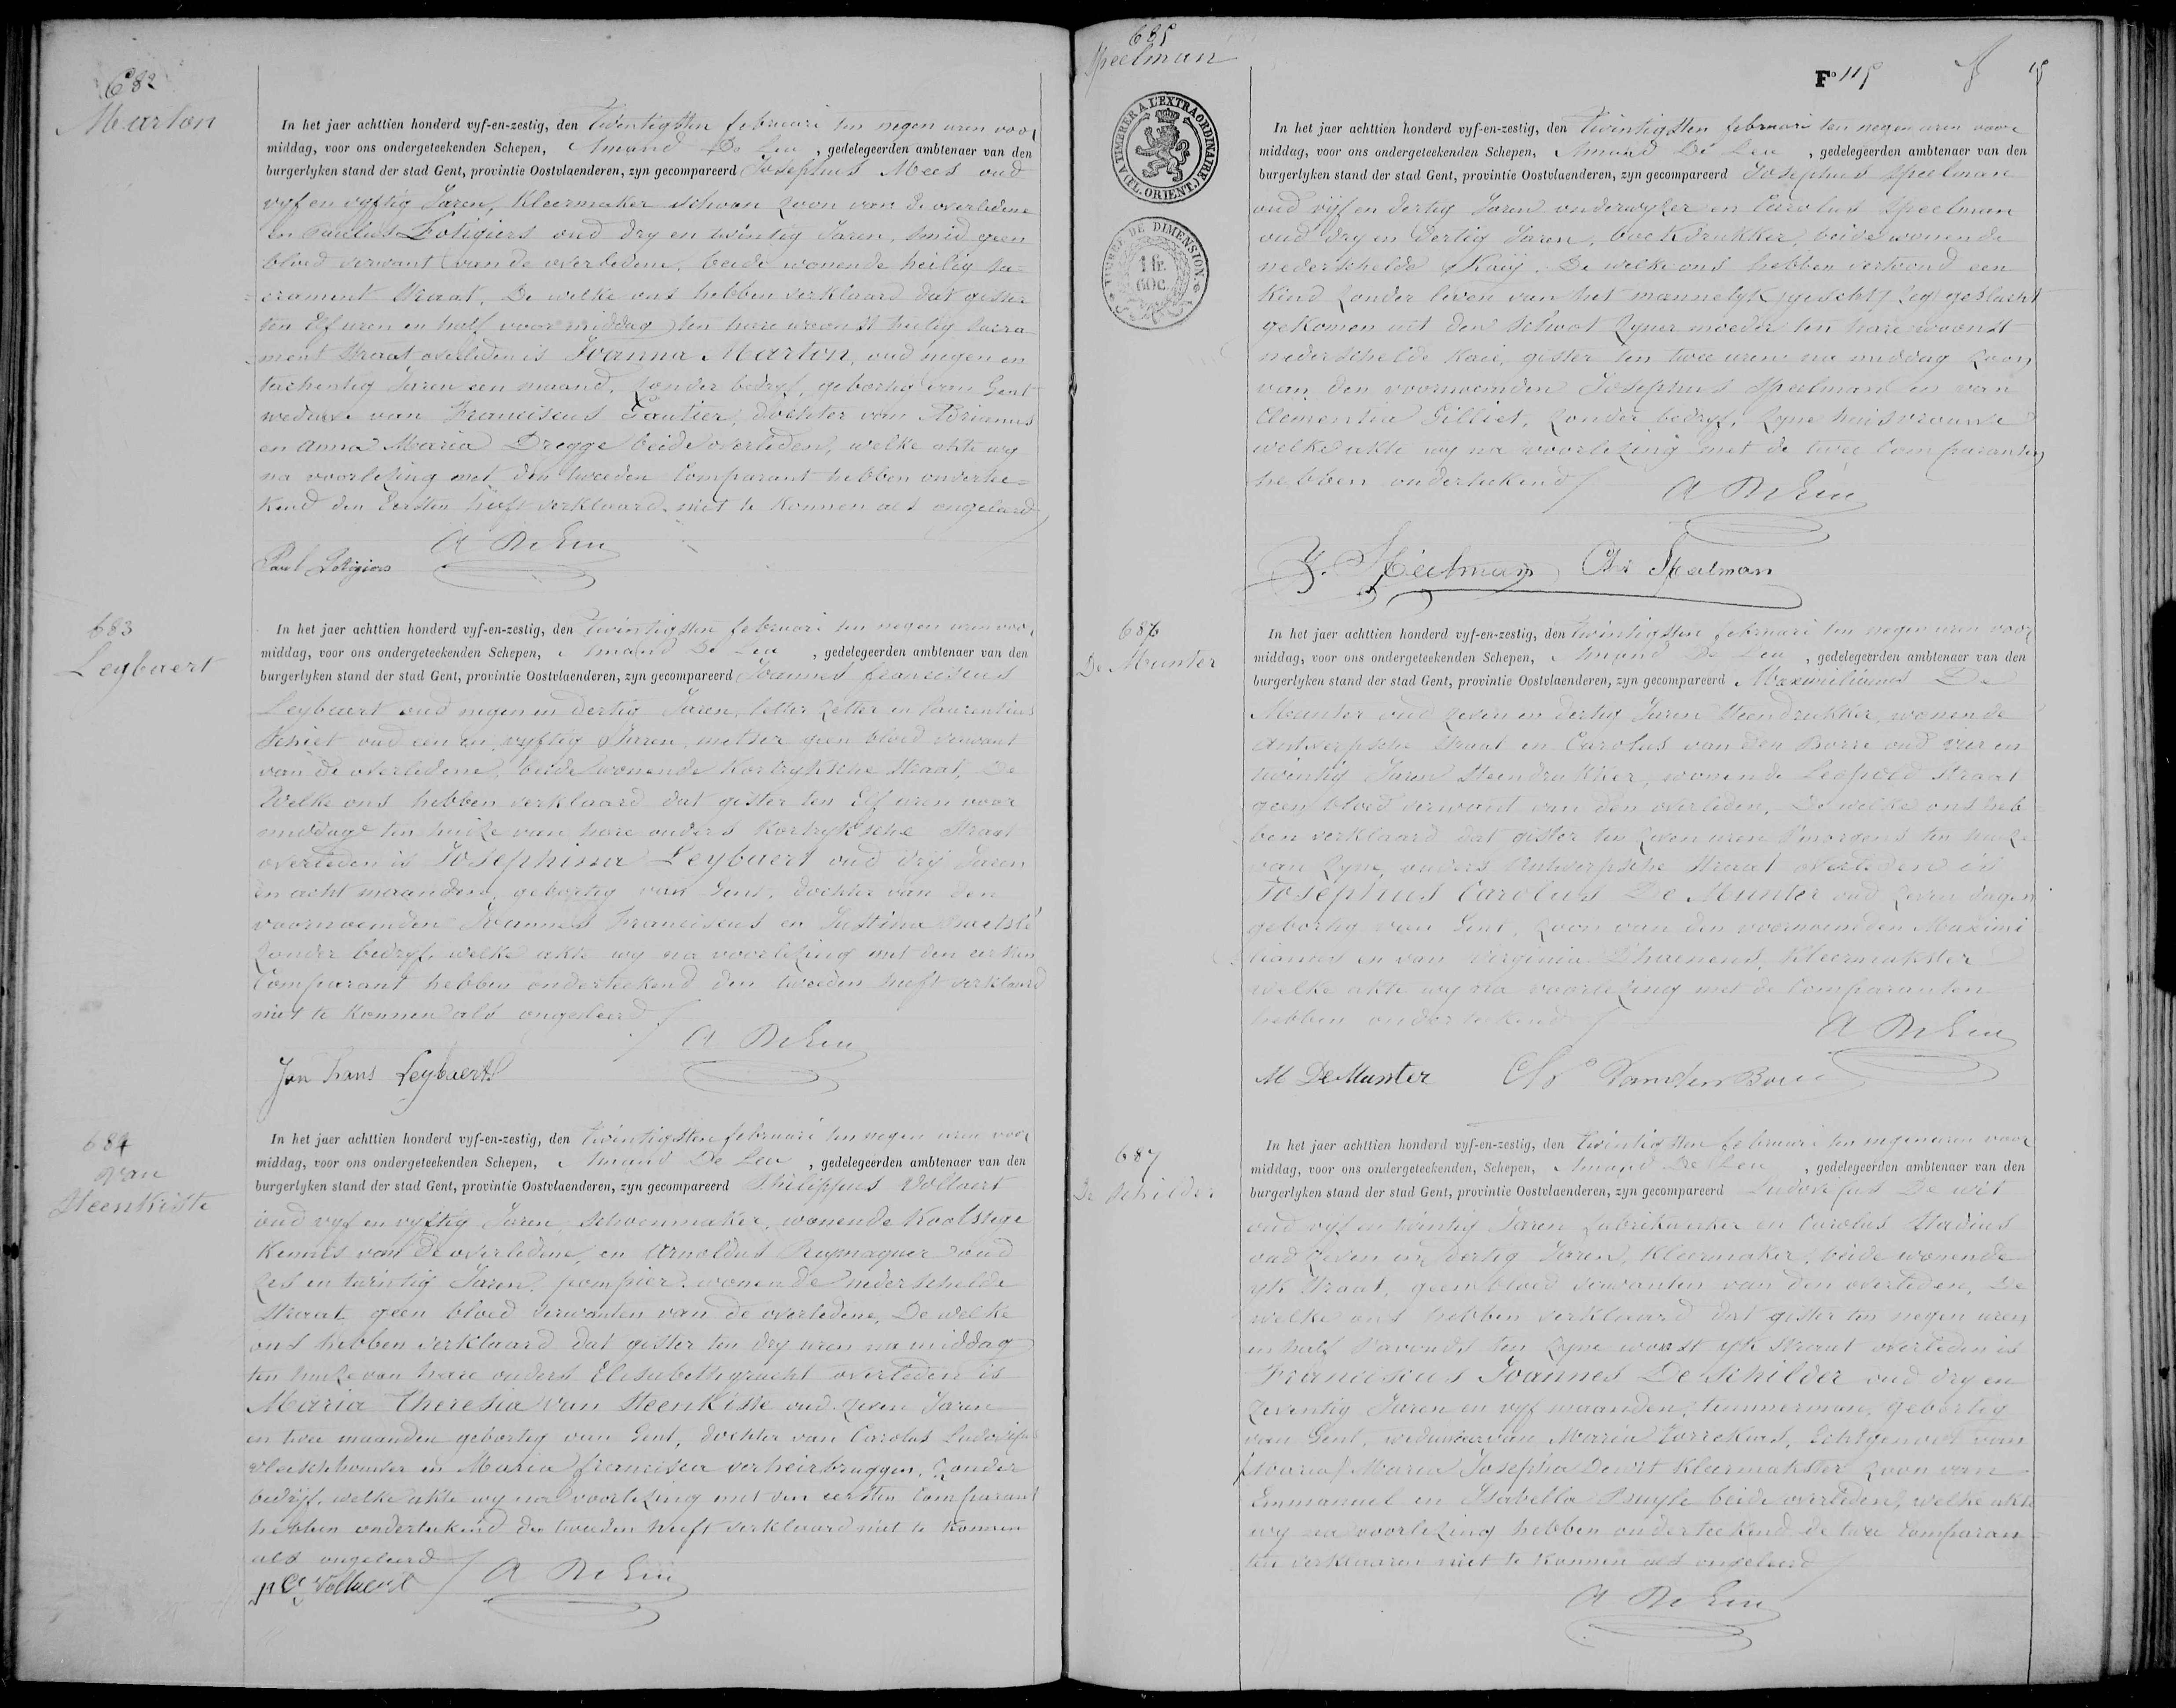 682
Marton
In het jaer achttien honderd vyf-en-zestig, den twintigsten februari ten negen uren voor
middag, voor ons ondergeteekenden Schepen, Amand De Leu, gedelegeerden ambtenaer van den
burgerlyken stand der stad Gent, provintie Oostvlaenderen, zyn gecompareerd Josephus Mees oud
vyf en vyftig Jaren, Kleermaker schoon zoon van de overledene
en Paulus Lotigiers oud dry en twintig Jaren, smid geen
bloed verwant van de overledene, beide wonende heilig sa=
=crament straat, De welke ons hebben verklaard dat gister
ten Elf uren en half voor middag ten hare woonst heilig sacra
=ment straat overleden is Joanna Marton, oud negen en
tachentig Jaren een maand, zonder bedryf, geboortig van Gent
weduwe van Franciscus Gautier, dochter van Adrianus
en Anna Maria Dregge beide overleden, welke akte wy
na voorlezing met den tweeden Comparant hebben ondertee=
kend den Eersten heeft verklaard niet te konnen als ongeleerd
A De Leu
Paul Lotigiers
683
Leybaert
In het jaer achttien honderd vyf-en-zestig, den twintigsten februari ten negen uren voor
middag, voor ons ondergeteekenden Schepen, Amand De Leu, gedelegeerden ambtenaer van den
burgerlyken stand der stad Gent, provintie Oostvlaenderen, zyn gecompareerd Joannes franciscus
Leybaert oud negen en dertig Jaren, letter zetter en Laurentius
Schiet oud een en vyftig Jaren, metser geen bloed verwant
van de overledene, beide wonende Kortryksche straat, De
Welke ons hebben verklaard dat gister ten Elf uren voor
middag ten huize van hare ouders Kortryksche straat
overleden is Josephina Leybaert oud dry Jaren
en acht maanden, geboortig van Gent, dochter van den
voornoemden Joannes Franciscus en Justina
zonder bedryf, welke akte wy na voorlezing met den eersten
Comparant hebben onderteekend den tweeden heeft verklaard
niet te konnen als ongeleerd
A De Leu
Jan Frans Leybaert
684
van
Steenkiste
In het jaer achttien honderd vyf-en-zestig, den twintigsten februari ten negen uren voor
middag, voor ons ondergeteekenden Schepen, Amand De Leu, gedelegeerden ambtenaer van den
burgerlyken stand der stad Gent, provintie Oostvlaenderen, zyn gecompareerd Philippus Vollaert
oud vyf en vyftig Jaren, schoenmaker, wonende Koolstege
Kennis van de overledene, en Arnoldus Reymaquer oud
zes en twintig Jaren, pompier, wonende neder schelde
straat geen bloed verwanten van de overledene, De welke
ons hebben verklaard dat gister ten dry uren na middag
ten huize van hare ouders Elisabethgracht overleden is
Maria Theresia van Steenkiste oud zeven Jaren
en twee maanden geboortig van Gent, dochter van Carolus Ludovicus
vleeschhouwer en Maria francisca verheirbruggen, zonder
bedryf, welke akte wy na voorlezing met den eersten Comparant
hebben onderteekend den tweeden heeft verklaard niet te konnen
als ongeleerd
A De Leu
Vollaert
685
Speelman
F° 115
TIMBRER A L'EXTRAORDINAIRE
(FL. ORIENT.)
TIMBRE DE DIMENSION
1 fr.
60c.
In het jaer achttien honderd vyf-en-zestig, den twintigsten februari ten negen uren voor
middag, voor ons ondergeteekenden Schepen, Amand De Leu, gedelegeerden ambtenaer van den
burgerlyken stand der stad Gent, provintie Oostvlaenderen, zyn gecompareerd Josephus Speelman
oud vyf en dertig Jaren onderwyzer en Carolus Speelman
oud dry en dertig Jaren, boekdrukker, beide wonende
nederschelde Kaij. De welke ons hebben vertoond een
Kind zonder leven van het mannelyk geslacht
gekomen uit den schoot zyner moeder ten hare woonst
nederschelde Kaie, gister ten twee uren na middag zoon
van den voornoemden Josephus Speelman en van
Clementia Gilliet, zonder bedryf, zyne huisvrouwe
welke akte wy na voorlezing met de twee Comparanten
hebben onderteekend
A De Leu
J. Speelman Chs Speelman
686
De Munter
In het jaer achttien honderd vyf-en-zestig, den twintigsten februari ten negen uren voor
middag, voor ons ondergeteekenden Schepen, Amand De Leu, gedelegeerden ambtenaer van den
burgerlyken stand der stad Gent, provintie Oostvlaenderen, zyn gecompareerd Maximilianus De
Munter oud zeven en dertig Jaren Steendrukker, wonende
Antwerpsche straat en Carolus van den Borre oud vier en
twintig Jaren Steendrukker, wonende Leopold straat
geen bloed verwant van den overleden, De welke ons heb
ben verklaard dat gister ten zeven uren s'morgens ten huize
van zyne ouders Antwerpsche straat overleden is
Josephus Carolus De Munter oud zeven dagen
geboortig van Gent, zoon van den voornoemden Maximi
lianus en van Virginia D'haenens, Kleermakster
welke akte wy na voorlezing met de Comparanten
hebben onderteekend
A De Leu
M De Munter Van den Borre
687
De Schilder
In het jaer achttien honderd vyf-en-zestig, den twintigsten februari ten negen uren voor
middag, voor ons ondergeteekenden, Schepen, Amand De Leu, gedelegeerden ambtenaer van den
burgerlyken stand der stad Gent, provintie Oostvlaenderen, zyn gecompareerd Ludovicus De wit
oud vyf en twintig Jaren fabrikwerker en Carolus Stadius
oud zeven en dertig Jaren, Kleermaker, beide wonende
yk straat, geen bloed verwanten van den overleden, De
welke ons hebben verklaard dat gister ten negen uren
en half s'avonds ten zyne woonst yk straat overleden is
Franciscus Joannes De Schilder oud dry en
zeventig Jaren en vyf maanden, timmerman, geboortig
van Gent, weduwaer van Maria Torrekens, Echtgenoot van
(Maria) Maria Josepha Dewit Kleermakster zoon van
Emmanuel en Isabella Buyle beide overleden, welke akte
wy na voorlezing hebben onderteekend de twee Comparan=
ten verklaaren niet te konnen als ongeleerd
A De Leu